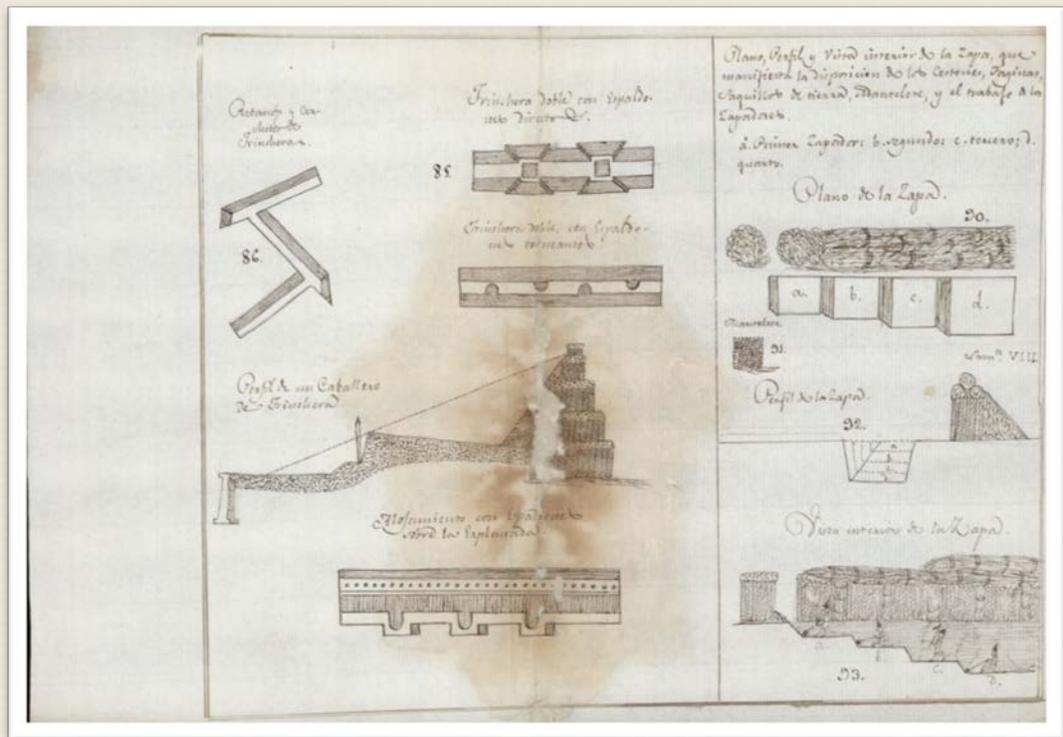 Retorno y Cor-
chetes de
Trinchera.
86.
Trinchera doble con Espaldo-
nes directos.
85.
Trinchera doble, con Espaldo-
nes tornantes.
Perfil de un Caballero
de Trinchera
Alojamiento con Espaldones
sobre la Explanada.
Plano, Perfil, y Vista interior de la Zapa, que
manifiesta la disposicion de los Cestones, Faginas,
Saquillos de tierra, Mantelete, y el trabajo de los
Zapadores.
a. Primer Zapador: b. segundo: c. tercero; d.
quarto.
Plano de la Zapa.
90.
a. b. c. d.
Mantelete
91.
Lamª. VIII.
Perfil de la Zapa.
92.
a
b
c
d
Vista interior de la Zapa.
a. b. c. d.
93.